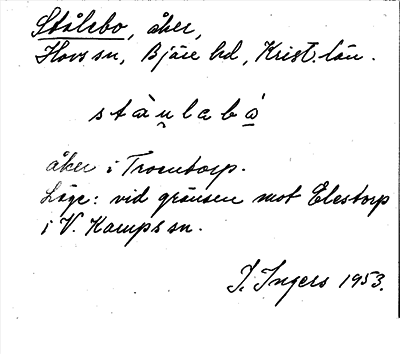 Stålebo, åker,
Hovs sn, Bjäre hd, Krist. län.
stàu̯labá
åker i Troentorp.
Läge: vid gränsen mot Elestorp
i V. Karups sn.
I. Ingers 1953.